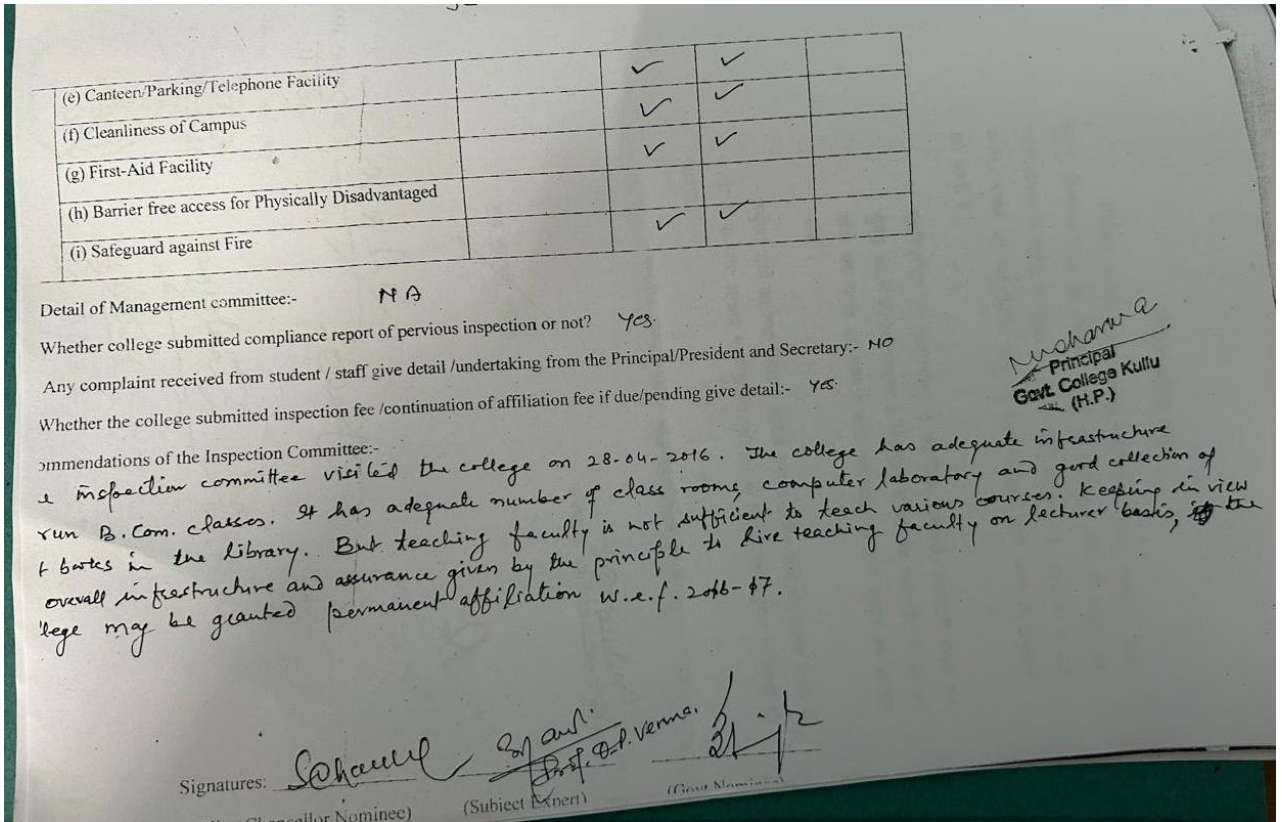 (e) Canteen/Parking/Telephone Facility ✓ ✓
(f) Cleanliness of Campus ✓ ✓
(g) First-Aid Facility ✓ ✓
(h) Barrier free access for Physically Disadvantaged
(i) Safeguard against Fire ✓ ✓
Detail of Management committee:- NA
Whether college submitted compliance report of pervious inspection or not? Yes.
Any complaint received from student / staff give detail /undertaking from the Principal/President and Secretary:- NO
Whether the college submitted inspection fee /continuation of affiliation fee if due/pending give detail:- Yes.
Principal
Govt. College Kullu
(H.P.)
ommendations of the Inspection Committee:-
e inspection committee visited the college on 28-04-2016. The college has adequate infrastructure
run B.Com. classes. It has adequate number of class rooms, computer laboratory and good collection of
t books in the library. But teaching faculty is not sufficient to teach various courses. Keeping in view
overall infrastructure and assurance given by the principle to hire teaching faculty on lecturer basis, the
'lege may be granted permanent affiliation w.e.f. 2016-17.
Prof. O.P. Verma.
Signatures:
Chancellor Nominee) (Subject Expert) (Govt Nominee)